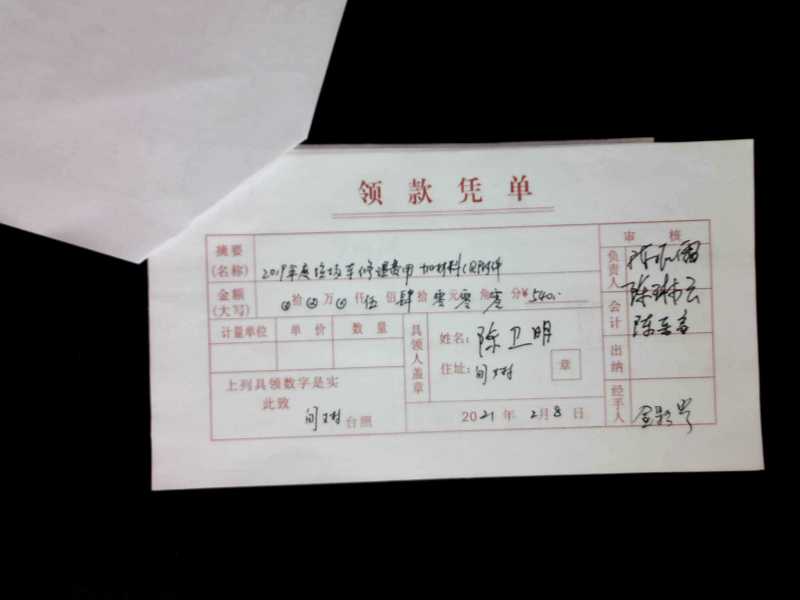 领款凭单
审核
摘要(名称) 2019年度垃圾车修理费用 加材料(见附件
金额(大写) 拾 万 仟 伍 佰 肆 拾 零 元 零 角 零 分 ¥ 540.
计量单位 单价 数量
具领人盖章
姓名: 陈卫明
住址:
章
上列具领数字是实
此致
台照
2021年 2月 8日
负责人
会计
出纳
经手人